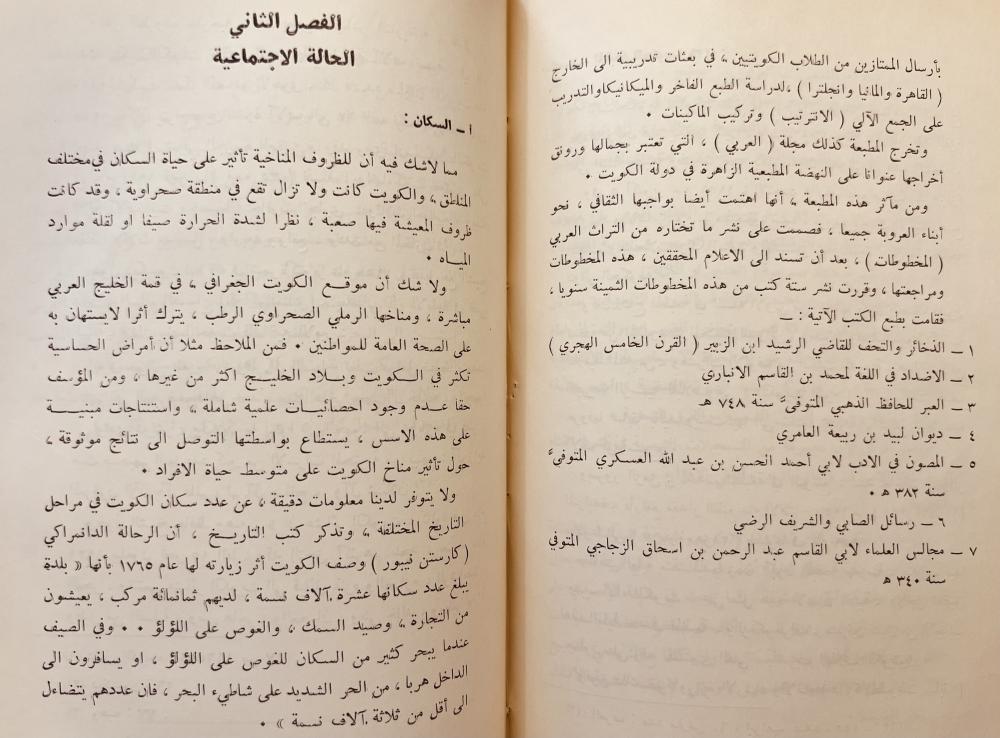 بأرسال الممتازين من الطلاب الكويتيين ، في بعثات تدريبية الى الخارج
( القاهرة والمانيا وانجلترا ) ،لدراسة الطبع الفاخر والميكانيكاوالتدريب
على الجمع الآلي ( الانترتيب ) وتركيب الماكينات ٠
وتخرج المطبعة كذلك مجلة ( العربي ) ، التي تعتبر بجمالها ورونق
أخراجها عنوانا على النهضة المطبعية الزاهرة في دولة الكويت ٠
ومن مآثر هذه المطبعة ، أنها اهتمت أيضا بواجبها الثقافي ، نحو
أبناء العروبة جميعا ، فصممت على نشر ما تختاره من التراث العربي
( المخطوطات ) ، بعد أن تسند الى الاعلام المحققين ، هذه المخطوطات
ومراجعتها ، وقررت نشر ستة كتب من هذه المخطوطات الثمينة سنويا ،
فقامت بطبع الكتب الآتية : ـ
١ ـ الذخائر والتحف للقاضي الرشيد ابن الزبير ( القرن الخامس الهجري )
٢ ـ الاضداد في اللغة لمحمد بن القاسم الانباري
٣ ـ العبر للحافظ الذهبي المتوفىَّ سنة ٧٤٨ هـ
٤ ـ ديوان لبيد بن ربيعة العامري
٥ ـ المصون في الادب لابي أحمد الحسن بن عبد الله العسكري المتوفىَّ
سنة ٣٨٢ هـ ٠
٦ ـ رسائل الصابي والشريف الرضي
٧ ـ مجالس العلماء لابي القاسم عبد الرحمن بن اسحاق الزجاجي المتوفي
سنة ٣٤٠ هـ
الفصل الثاني
الحالة الاجتماعية
أ ـ السكان :
مما لاشك فيه أن للظروف المناخية تأثير على حياة السكان في مختلف
المناطق ، والكويت كانت ولا تزال تقع في منطقة صحراوية ، وقد كانت
ظروف المعيشة فيها صعبة ، نظرا لشدة الحرارة صيفا او لقلة موارد
المياه ٠
ولا شك أن موقع الكويت الجغرافي ، في قمة الخليج العربي
مباشرة ، ومناخها الرملي الصحراوي الرطب ، يترك أثرا لايستهان به
على الصحة العامة للمواطنين ٠ فمن الملاحظ مثلا أن أمراض الحساسية
تكثر في الكويت وبلاد الخليج اكثر من غيرها ، ومن المؤسف
حقا عدم وجود احصائيات علمية شاملة ، واستنتاجات مبنية
على هذه الاسس ، يستطاع بواسطتها التوصل الى نتائج موثوقة ،
حول تأثير مناخ الكويت على متوسط حياة الافراد ٠
ولا يتوفر لدينا معلومات دقيقة ، عن عدد سكان الكويت في مراحل
التاريخ المختلفة ، وتذكر كتب التاريخ ، أن الرحالة الدانمراكي
( كارستن نيبور ) وصف الكويت أثر زيارته لها عام ١٧٦٥ بأنها « بلدة
يبلغ عدد سكانها عشرة آلاف نسمة ، لديهم ثمانمائة مركب ، يعيشون
من التجارة ، وصيد السمك ، والغوص على اللؤلؤ ٠ ٠ وفي الصيف
عندما يبحر كثير من السكان للغوص على اللؤلؤ ، او يسافرون الى
الداخل هربا ، من الحر الشديد على شاطيء البحر ، فان عددهم يتضاءل
الى أقل من ثلاثة آلاف نسمة » ٠